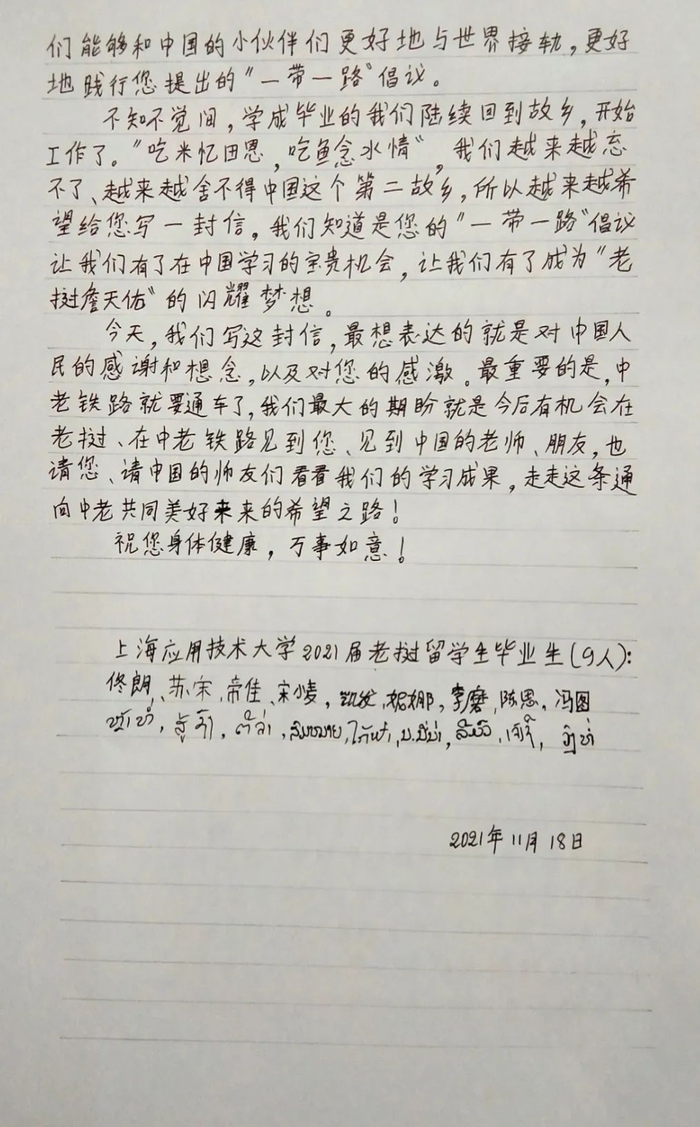 们能够和中国的小伙伴们更好地与世界接轨，更好
地践行您提出的"一带一路"倡议。
不知不觉间，学成毕业的我们陆续回到故乡，开始
工作了。"吃米忆田恩，吃鱼念水情"，我们越来越忘
不了、越来越舍不得中国这个第二故乡，所以越来越希
望给您写一封信，我们知道是您的"一带一路"倡议
让我们有了在中国学习的宝贵机会，让我们有了成为"老
挝詹天佑"的闪耀梦想。
今天，我们写这封信，最想表达的就是对中国人
民的感谢和想念，以及对您的感激。最重要的是，中
老铁路就要通车了，我们最大的期盼就是今后有机会在
老挝、在中老铁路见到您、见到中国的老师、朋友，也
请您、请中国的师友们看看我们的学习成果，走走这条通
向中老共同美好未来的希望之路！
祝您身体健康，万事如意！
上海应用技术大学2021届老挝留学生毕业生(9人)：
佟朗、苏宋，帝佳、宋小凌，凯发，妮娜，李磨，陈思，冯图
2021年11月18日